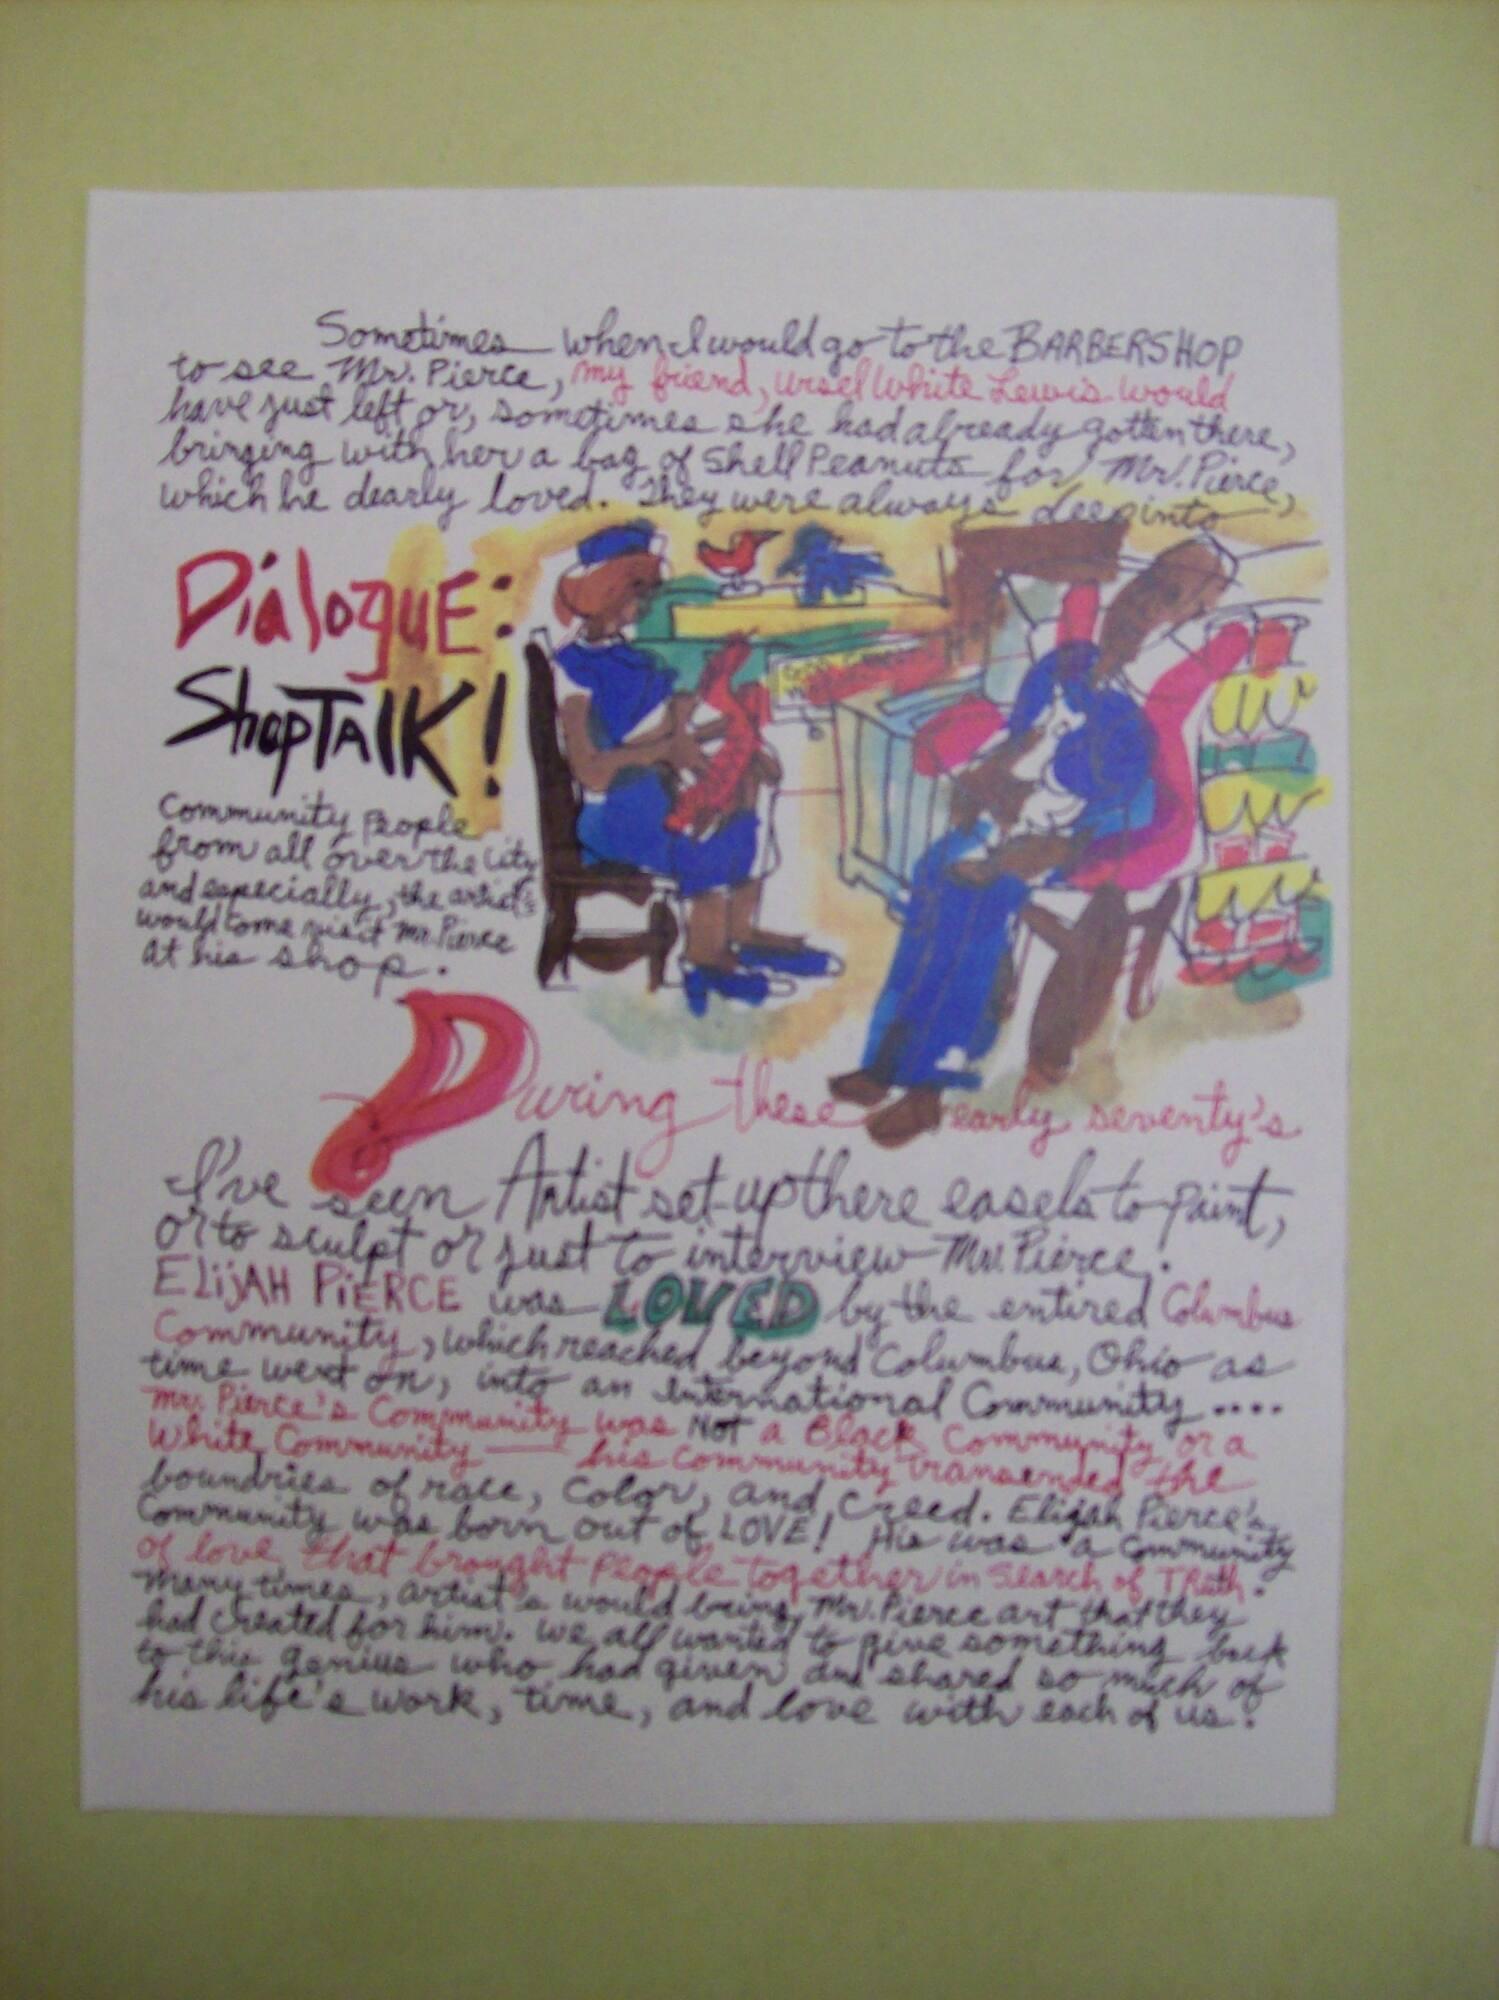 Sometimes when I would go to the BARBERSHOP
to see Mr. Pierce, my friend, Ursel White Lewis would
have just left or, sometimes she had already gotten there,
bringing with her a bag of Shell Peanuts for Mr. Pierce,
which he dearly loved. They were always deep into
DialoguE:
ShopTAlK!
Community People
from all over the city
and especially, the artist's
would come visit Mr. Pierce
At his shop.
During these early seventy's
I've seen Artist set-up there easels to paint,
or to sculpt or just to interview Mr. Pierce.
ELijAH PiERCE was LOVED by the entired Columbus
Community, which reached beyond Columbus, Ohio as
time went on, into an International Community....
Mr. Pierce's Community was NOT a Black Community or a
White Community — his community transended the
boundries of race, color, and creed. Elijah Pierce's
Community was born out of LOVE! His was a Community
of love that brought People together in Search of TRuth.
Many times, artist's would bring Mr. Pierce art that they
had created for him. We all wanted to give something back
to this genius who had given and shared so much of
his life's work, time, and love with each of us.